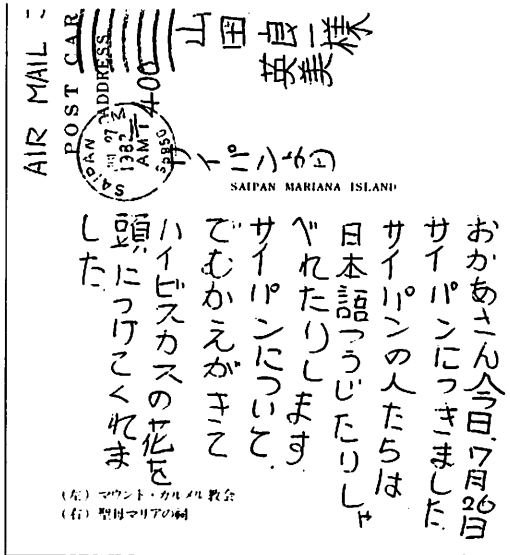 AIR MAIL
POST CAR
ADDRESS
山田良一様
英美
400
SAIPAN
1982
AM
96950
サイパンより
SAIPAN MARIANA ISLAND
おかあさん今日、7月26日
サイパンにつきました。
サイパンの人たちは
日本語つうじたりしゃ
べれたりします
サイパンについて、
でむかえがきて
ハイビスカスの花を
頭につけてくれま
した。
(左) マウント・カルメル教会
(右) 聖母マリアの祠